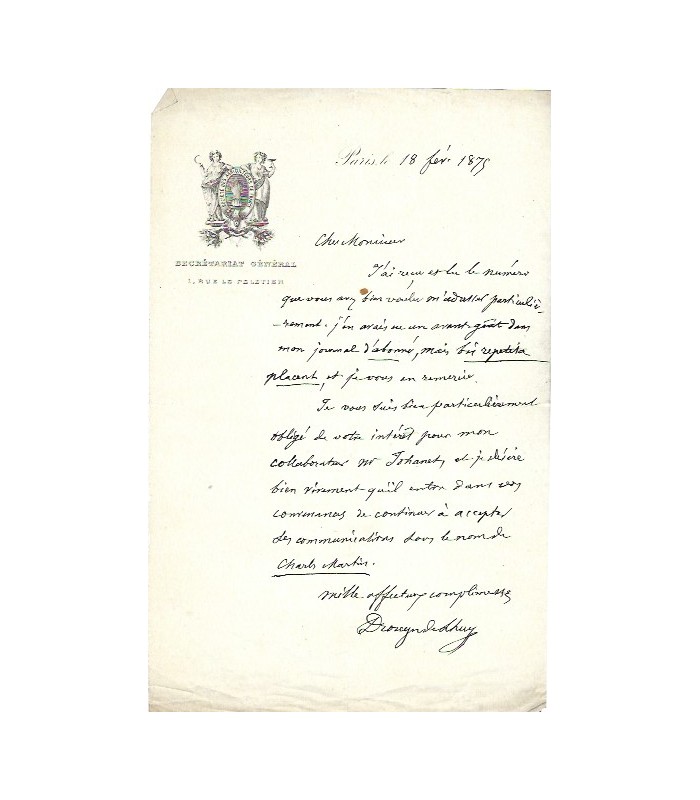 Paris, le 18 fév. 1875
SECRÉTARIAT GÉNÉRAL
1, RUE LE PELETIER
Cher Monsieur
J'ai reçu et lu le numéro
que vous avez bien voulu m'adresser particuliè-
-rement. j'en avais eu un avant-goût dans
mon journal d'abonné, mais bis repetita
placent, et je vous en remercie.
Je vous suis bien particulièrement
obligé de votre intérêt pour mon
collaborateur Mr Johanet, et je désire
bien vivement qu'il entre dans vos
convenances de continuer à accepter
ses communications sous le nom de
Charles Martin.
Mille affectueux compliments
Drouyn de Lhuys